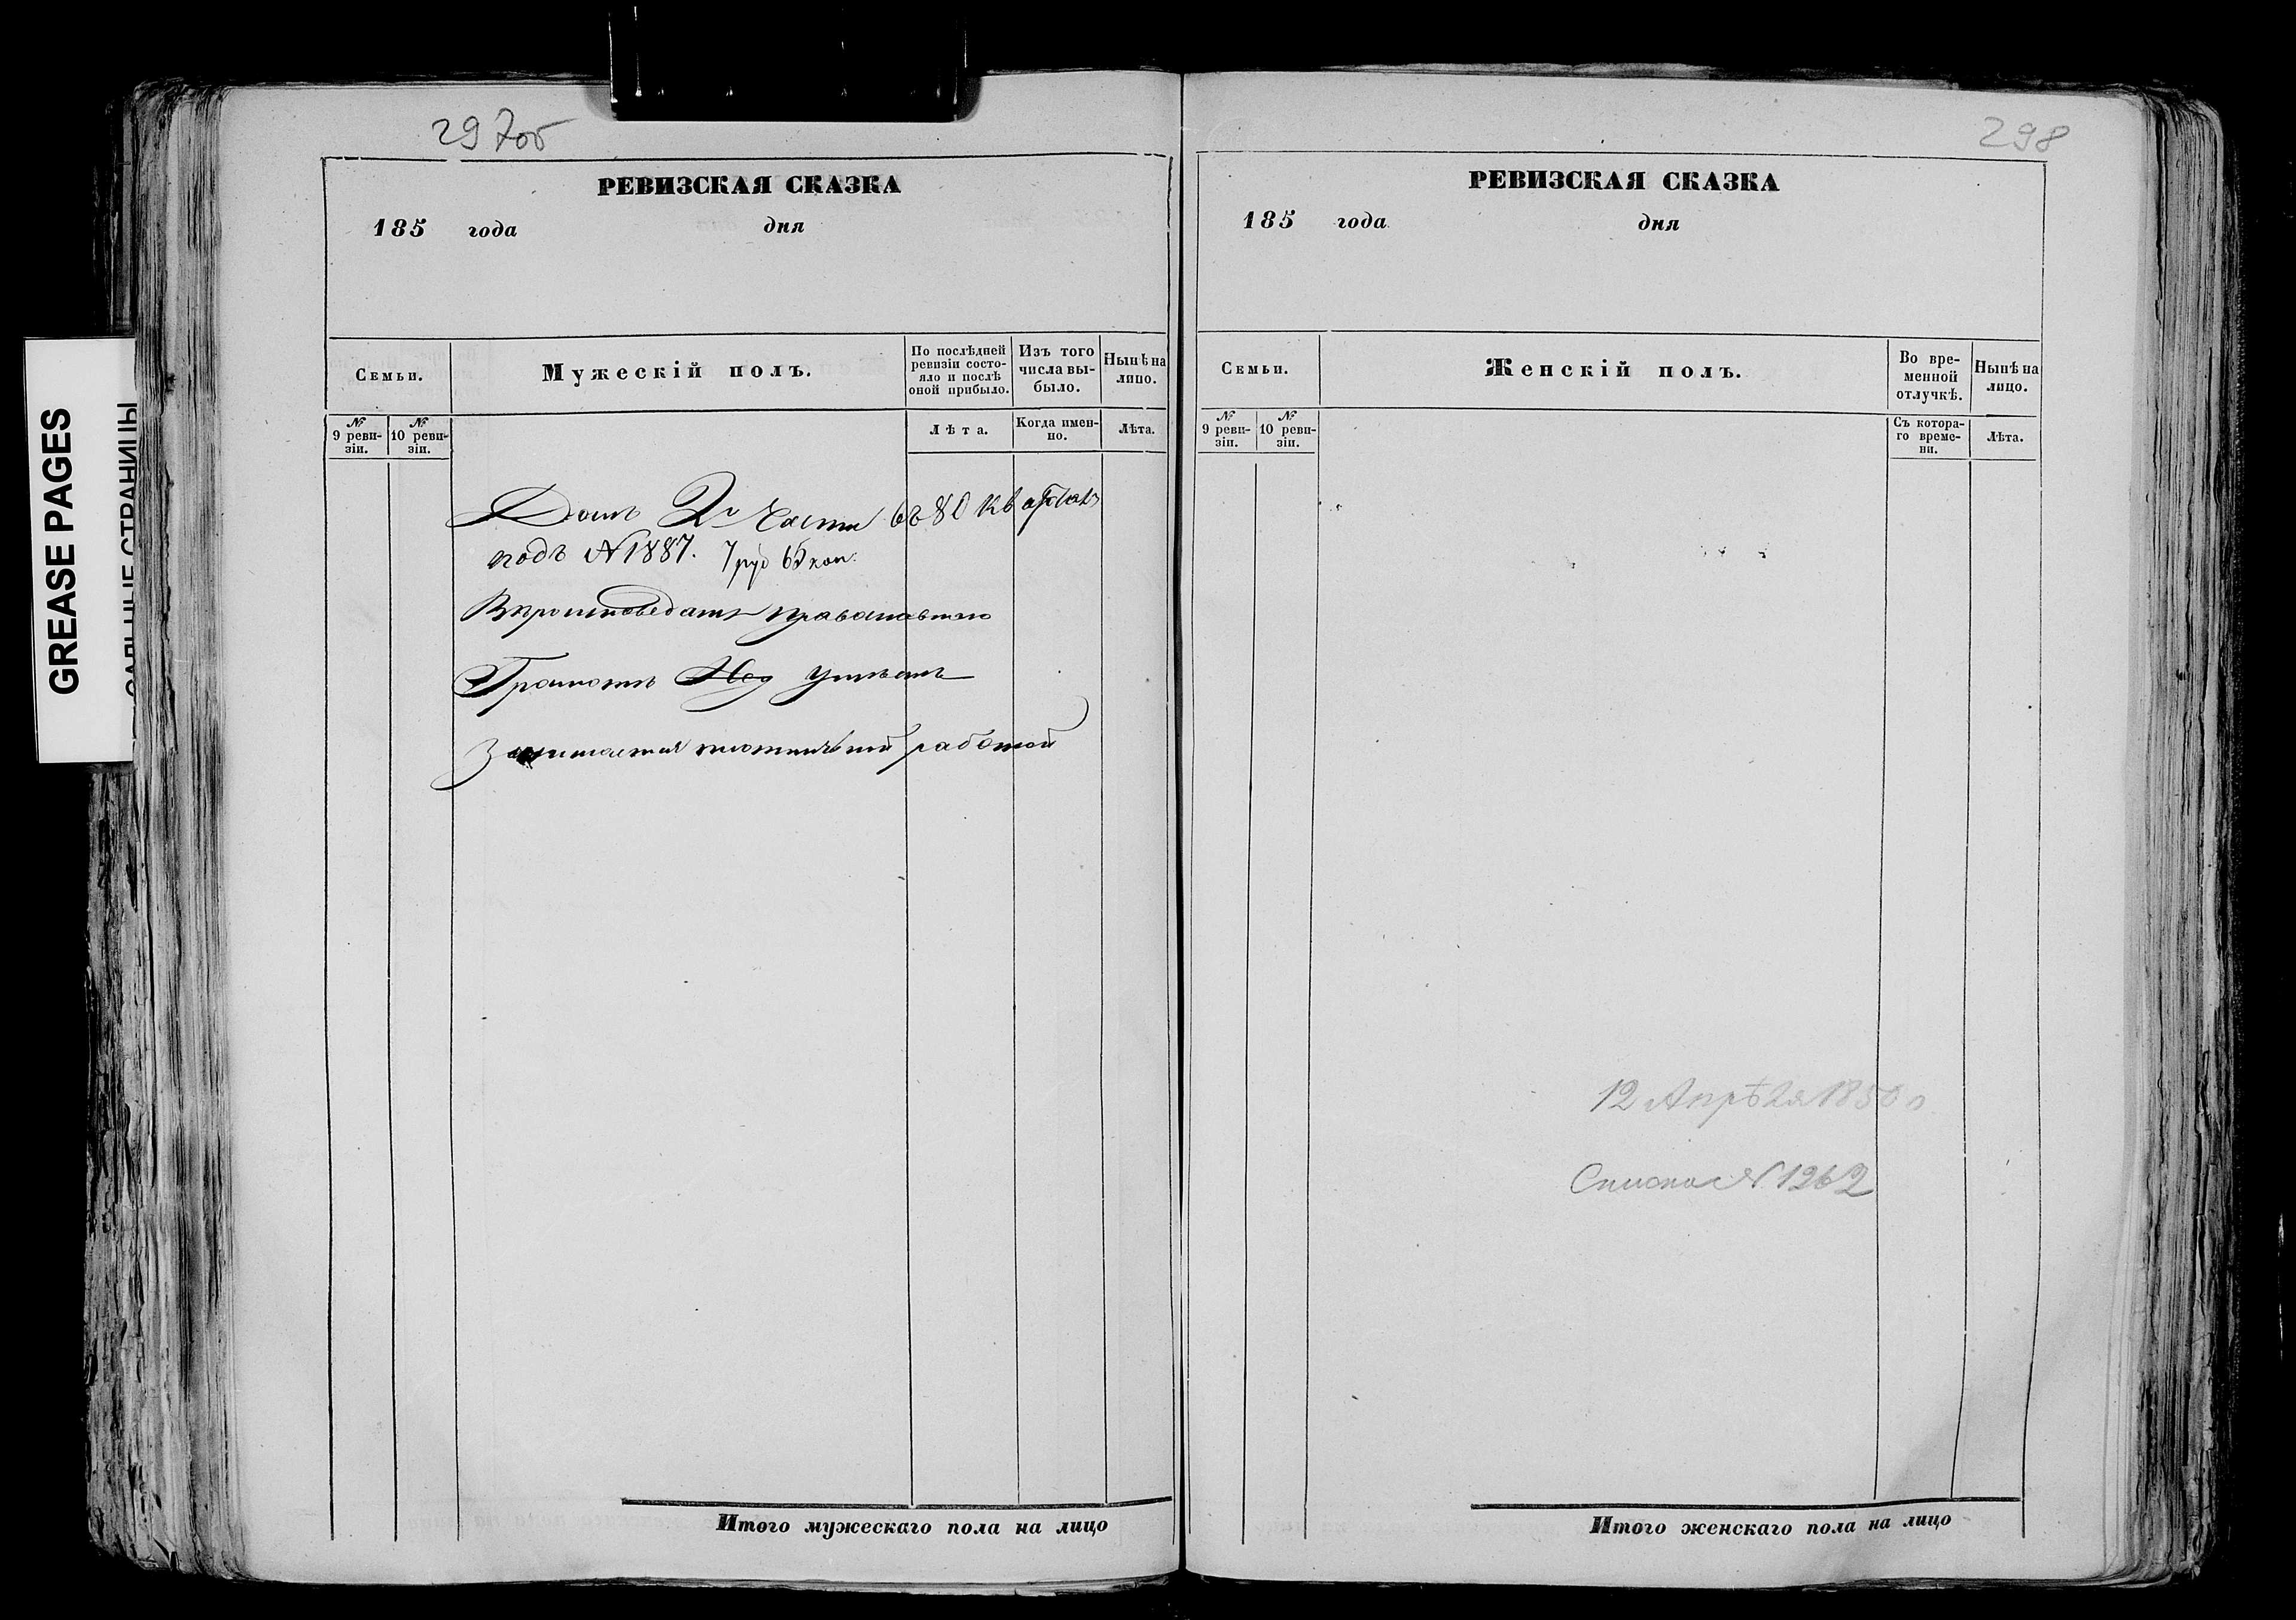 GREASE PAGES
297об
РЕВИЗСКАЯ СКАЗКА
185 года дня
Семьи.
Мужескій полъ.
По послѣдней ревизіи состояло и послѣ оной прибыло.
Изъ того числа выбыло.
Нынѣ на лицо.
№ 9 ревизіи.
№ 10 ревизіи.
Лѣта.
Когда именно.
Лѣта.
Домъ 2й Части въ 80 кварталѣ
подъ № 1887. 7 руб 65 коп.
Грамотѣ Не умѣетъ
Занимается работой
Итого мужескаго пола на лицо
298
РЕВИЗСКАЯ СКАЗКА
185 года дня
Семьи.
Женскій полъ.
Во временной отлучкѣ.
Нынѣ на лицо.
№ 9 ревизіи.
№ 10 ревизіи.
Съ котораго времени.
Лѣта.
12 Апрѣля 1850
Списка № 1262
Итого женскаго пола на лицо